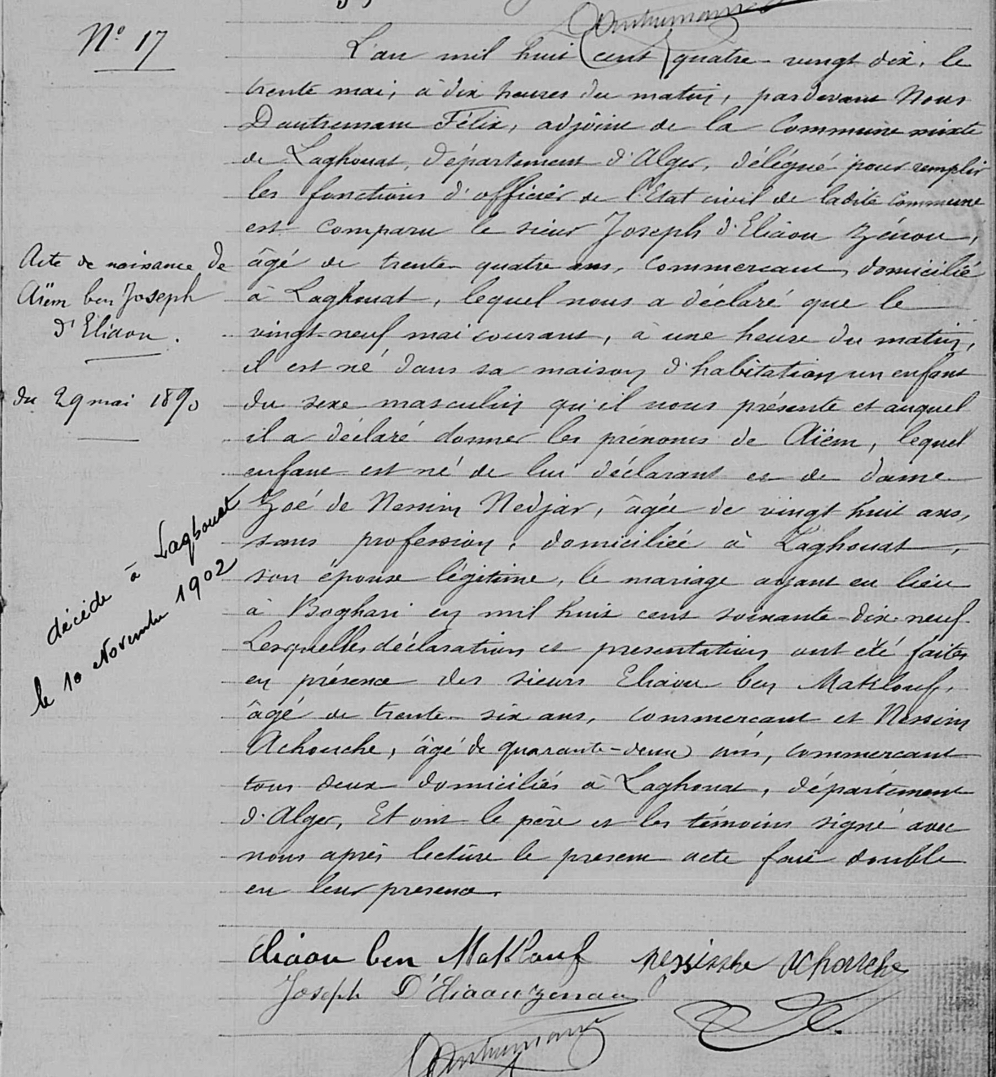 Nº 17
Acte de naissance de
Aïem ben Joseph
d'Eliaou.
du 29 mai 1890
décédé à Laghouat
le 10 Novembre 1902
L'an mil huit cent quatre-vingt dix, le
trente mai, à dix heures du matin, pardevant Nous
Dautremant Félix, adjoint de la Commune mixte
de Laghouat, département d'Alger, délégué pour remplir
les fonctions d'officier de l'Etat civil de ladite Commune
est comparu le sieur Joseph d'Eliaou Zénou,
âgé de trente-quatre ans, commerçant, domicilié
à Laghouat, lequel nous a déclaré que le
vingt-neuf mai courant, à une heure du matin,
il est né dans sa maison d'habitation un enfant
du sexe masculin qu'il nous présente et auquel
il a déclaré donner les prénoms de Aïem, lequel
enfant est né de lui déclarant et de dame
Zoé de Nessim Nedjar, âgée de vingt huit ans,
sans profession, domiciliée à Laghouat,
son épouse légitime, le mariage ayant eu lieu
à Boghari en mil huit cent soixante-dix-neuf.
Lesquelles déclaration et présentation ont été faites
en présence des sieurs Eliaou ben Maklouf,
âgé de trente-six ans, commerçant et Nessim
Achouche, âgé de quarante-deux ans, commerçant
tous deux domiciliés à Laghouat, département
d'Alger, Et ont le père et les témoins signé avec
nous après lecture le présent acte fait double
en leur présence.
Eliaou ben Maklouf
Joseph D'Eliaou Zenou